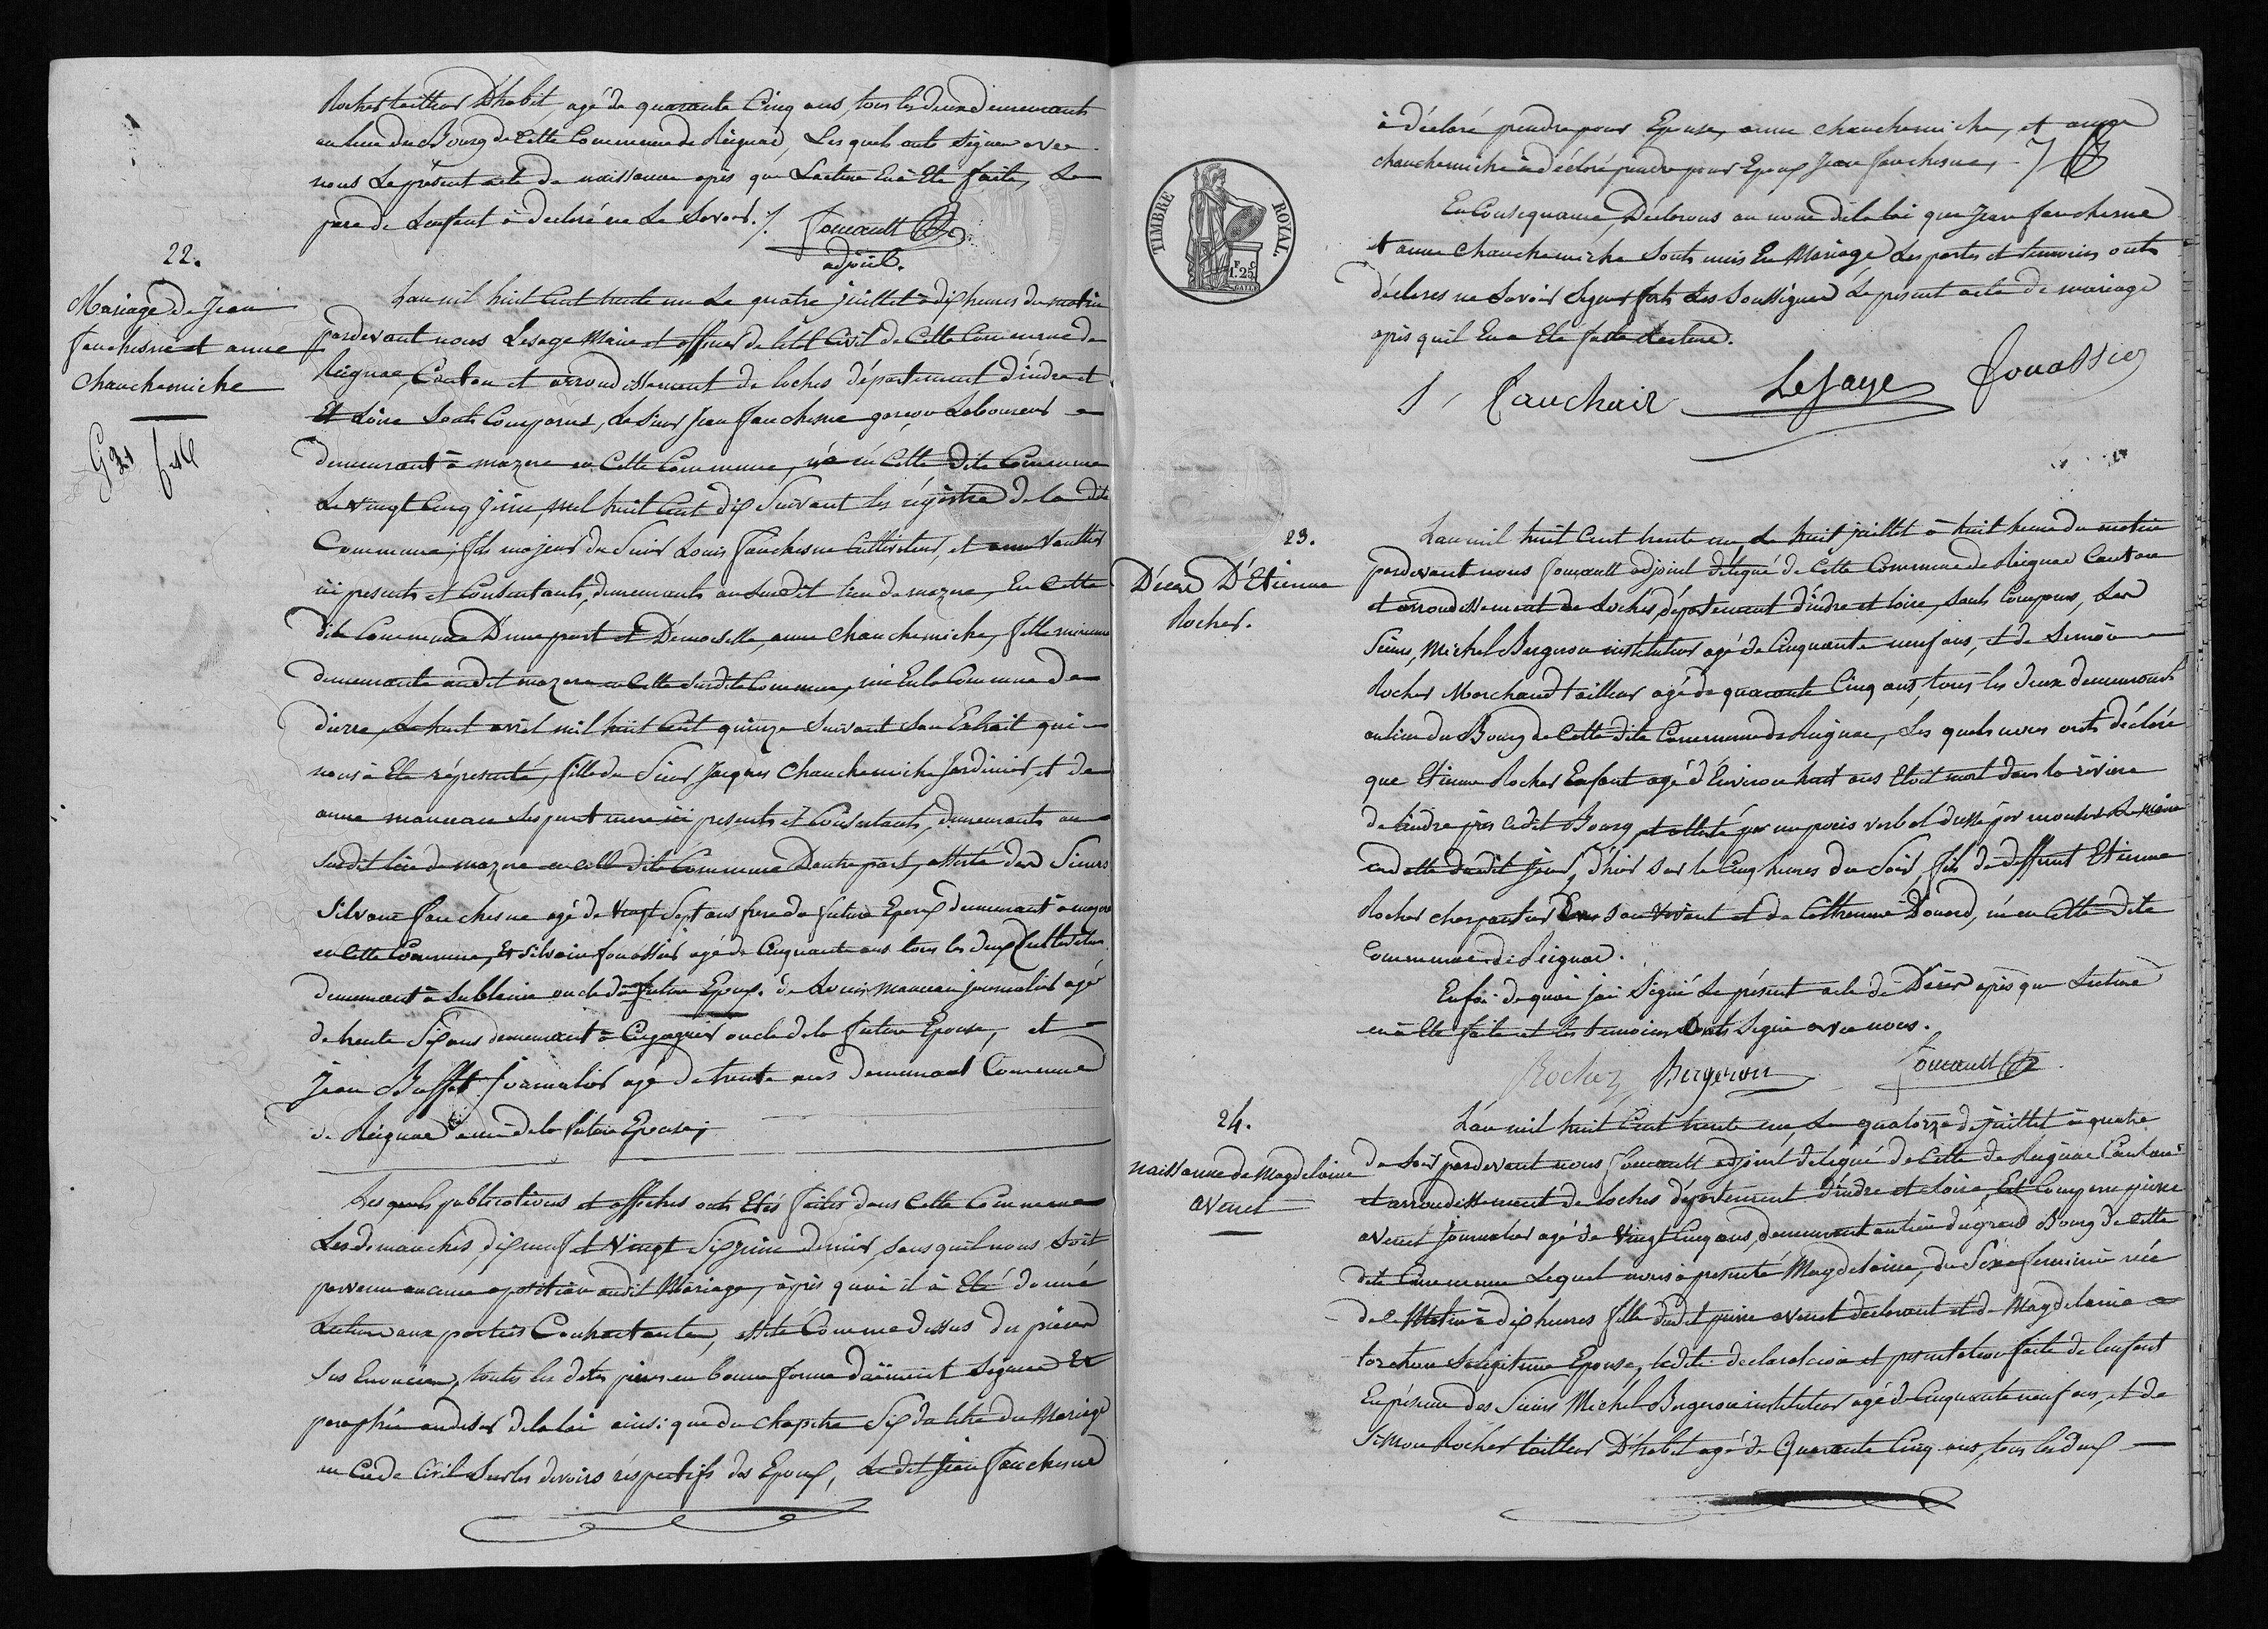 Rocher tailleur D'habit agé de quarante Cinq ans, tous les deux demeurants
au lieu du Bourg de Cette Commune de Reignac, Les quels onts signer avec
nous Le présent acte de naissance aprés que Lecture En à Eté faite, Le
pere de Lenfant à declaré ne Le Savoir ./. Foucault
adjoint.
22.
Mariage de Jean
fauchesne et anne
chauchemiche
Lan mil huit Cent trente un Le quatre juillet à dix heures du matin
pardevant nous Lesage Maire et officier de letat Civil de Cette Commune de
Reignac, Canton et arrondissement de loches département dindre et
Et Loire Sonts Comparus, Le Sieur Jean fauchesne garçon Laboureur
demeurant à mazere en Cette Commune, né en Cette dite Commune
Le vingt Cinq juin, mil huit Cent dix Suivant les régistre de la dite
Commune, fils majeur du Sieur Louis Fauchesne Cultivateur, et anne Vaultier
ici presents et Consentants, demeurants au Susdit lieu de mazere, En Cette
dite Commune D'une part et Demoiselle, anne chauchemiche, fille mineure
demeurante audit mazere en Cette Susdite Commune, née En la Commune de
dierre, Le huit avril mil huit Cent quinze Suivant Son Extrait qui
nous à Eté réprésenté, fille du Sieur Jacques Chauchemiche Jardinier, et de
anne manceau Ses pere et mere ici presents et Consentants, demeurants au
Susdit lieu de mazere en cette dite Commune Dautre part, assisté des Sieurs
Silvain fauchesne agé de Vingt Sept ans frere du futur Epoux demeurant à mazere
en Cette Commune, Et Silvain fouassier agé de Cinquante ans tous les deux Cultivateurs
demeurant à Sublaine oncle du futur Epoux. de Louis Manceau journalier agé
de trente Six ans demeurant à oncle de la future Epouse, et
Jean Buffet journalier agé de trente ans demeurant Commune
de Reignac ami de la future Epouse;
Les quels publications et affiches onts Etés faites dans Cette Commune
Les dimanches, dix neuf et Vingt Six juin dernier, sans quil nous Soit
parvenu aucune opostition audit Mariage, àprès quoi il à Eté donné
Lecture aux parties Contractantes, assisté Comme dessus des pièces
Sus Enoncées, toutes les dites pieces en bonne forme duëment Signée Et
paraphée audesir de la loi ainsi que du chapitre Six du titre du Mariage
au Code Civil Sur les devoirs réspectifs des Epoux, Le dit Jean Fauchesne
à déclaré prendre pour Epouse, anne chauchemiche, et anne
chauchemiche à déclaré prendre pour Epoux Jean fauchesne,
En Consequance, Déclarons au nom de la loi que Jean fauchesne
et anne Chauchemiche Sonts unis En Mariage Les parties et temoins onts
déclarés ne Savoir Signer forts Les Soussignés Le présent acte de mariage
après quil En a Eté faite Lecture.
S. Fauchair LeSage Fouassier
TIMBRE ROYAL.
F C
1.25
23.
Décès D'Etienne
Rocher.
Lan mil huit Cent trente un, Le huit juillet à huit heure du matin
pardevant nous Foucault adjoint délégué de Cette Commune de Reignac Canton
et arrondissement de Loches, département d'indre et loire, Sonts Comparus, Les
Sieurs, Michel Bergeron instituteur agé de Cinquante neuf ans, et de Simon
Rocher Marchand tailleur agé de quarante Cinq ans, tous les deux demeurants
au lieu du Bourg de Cette dite Commune de Reignac, Les quels nous onts déclaré
que Etienne Rocher Enfant agé d'Environ huit ans Etoit mort dans la rivière
de lindre près Cedit Bourg, et attesté par un procès verbal dressé par monsieur Le maire
en datte dudit jour, d'hier Sur le Cinq heures du Soir, fils de deffunt Etienne
Rocher charpentier de Son Vivant et de Catherinne Douard, né en Cette dite
Commune de Reignac.
En foi de quoi jai Signé Le présent acte de Décès après que Lecture
en à Eté faite et les temoins onts Signé avec nous.
Rocher Bergeron Foucault
24.
naissanne de Magdelaine
avenet
Lan mil huit Cent trente un, Le quatorze de juillet à quatre
du Soir pardevant nous Foucault adjoint délégué de Cette de Reignac Canton
et arrondissement de Loches département d'indre et Loire, Est Comparu pierre
avenet Journalier agé de Vingt Cinq ans, demeurant au lieu du grand Bourg de Cette
dite Commune Lequel nous à presenté Magdelaine, du Sexe feminin née
de Ce Matin à dix heures fille dudit pierre avenet declarant et de Magdelaine
Sa legitime Epouse, ladite declaration et presentation faite de lenfant
En présence des Sieurs Michel Bergeron instituteur agé de Cinquante neuf ans, et de
Simon Rocher tailleur D'habit agé de Quarante Cinq ans, tous les deux